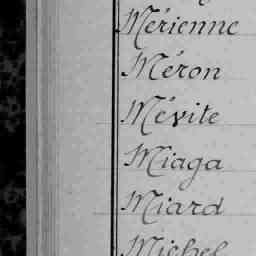 Mérienne
Méron
Mévite
Miaga
Miard
Michel